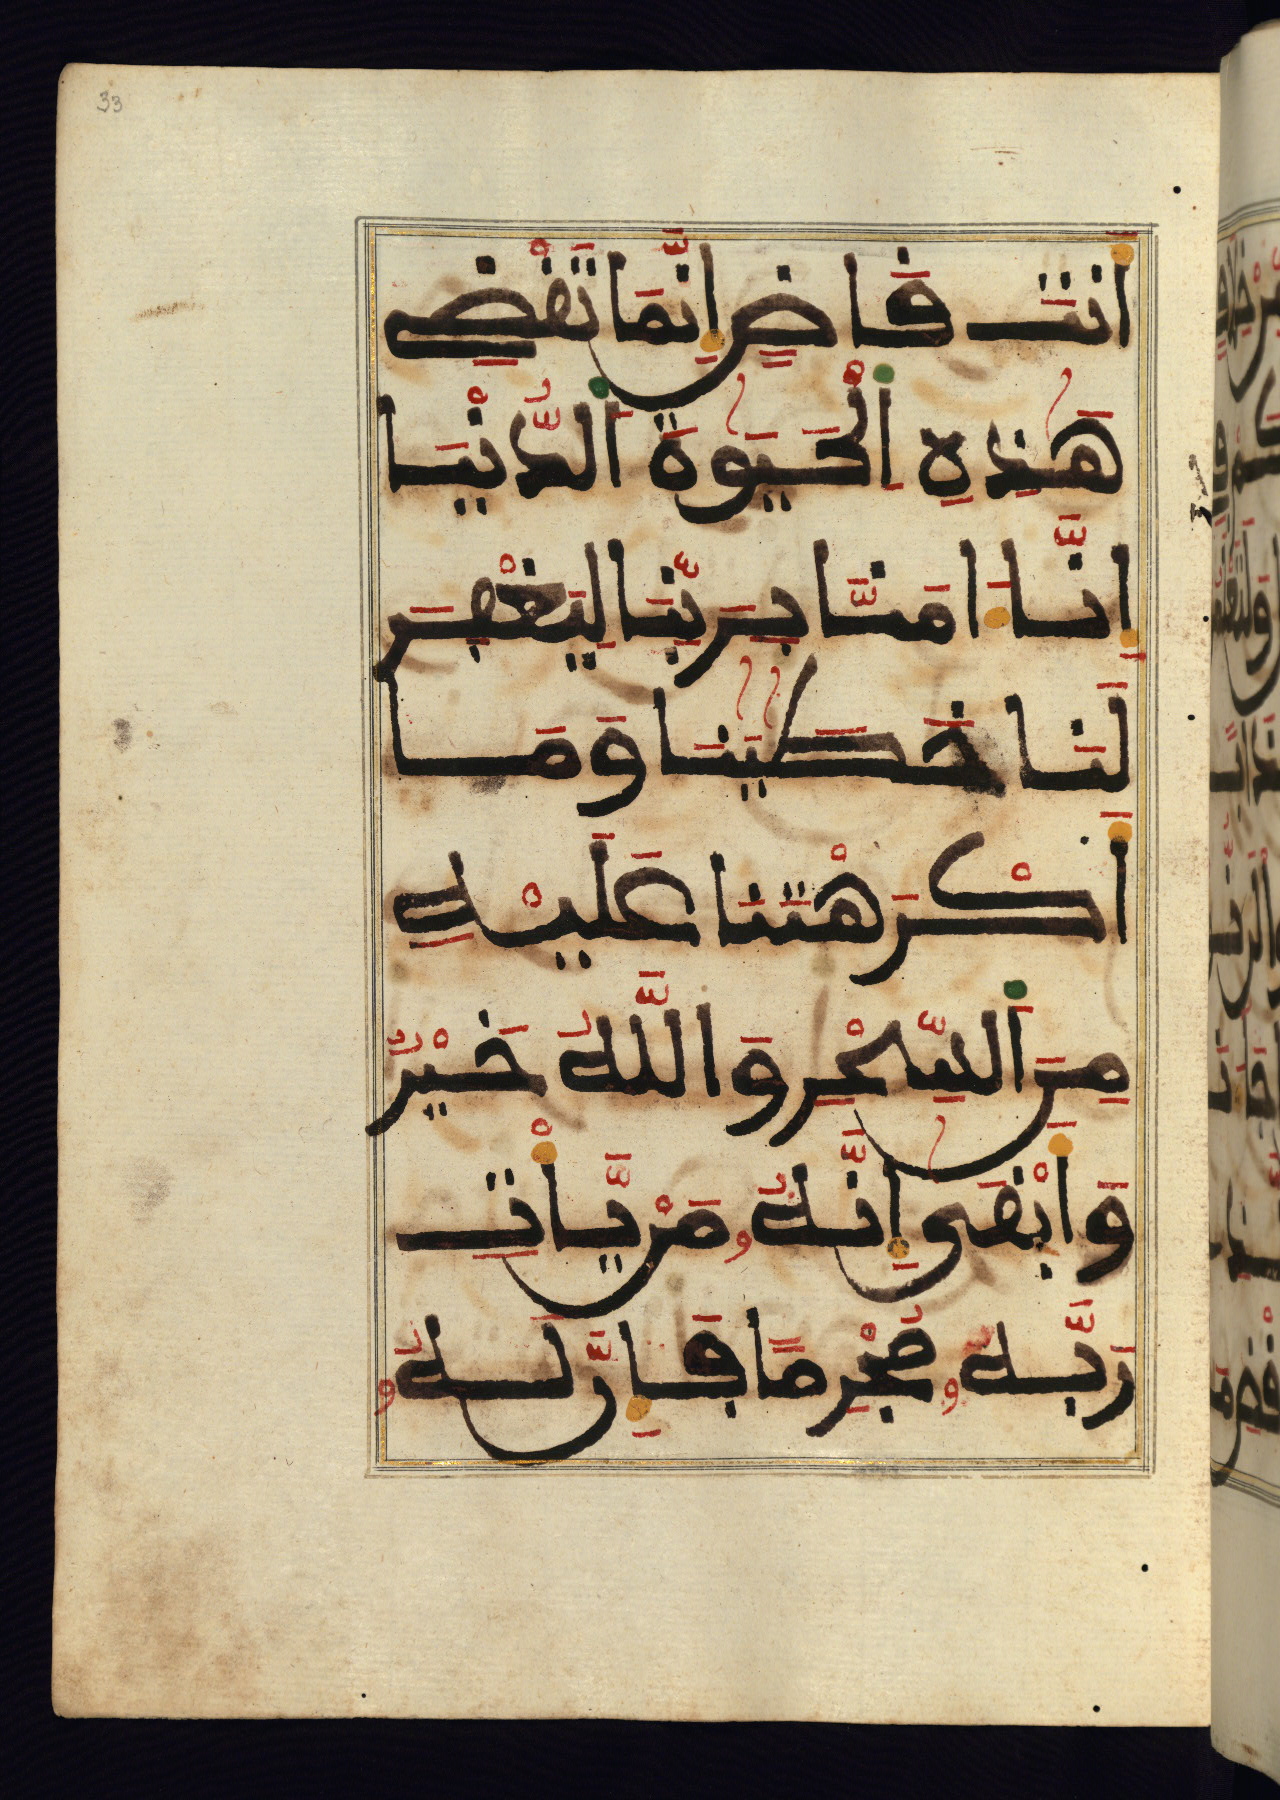 33
اَنتَ قَاضٍ اِنَّمَا تَقْضِے
هَٰذِهِ اِ۬لْحَيَوٰةَ اَ۬لدُّنْيَا
إِنَّا ءَامَنَّا بِرَبِّنَا لِيَغْفِرَ
لَنَا خَطَٰيَٰنَا وَمَا
أَكْرَهْتَنَا عَلَيْهِ
مِنَ اَ۬لسِّحْرِ وَاللَّهُ خَيْرٌ
وَأَبْقَىٰ إِنَّهُۥ مَنْ يَّأْتِ
رَبَّهُۥ مُجْرِمًا فَإِنَّ لَهُۥ